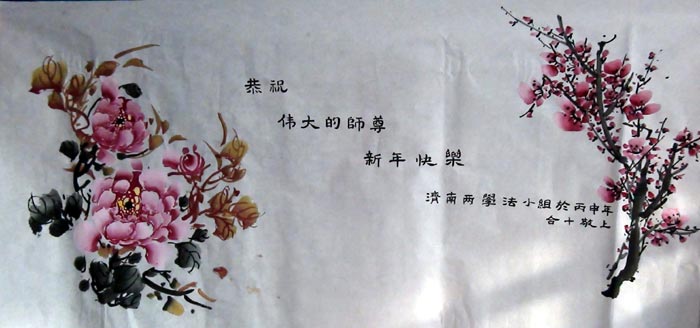 恭祝
伟大的師尊
新年快樂
濟南两學法小组於丙申年
合十敬上